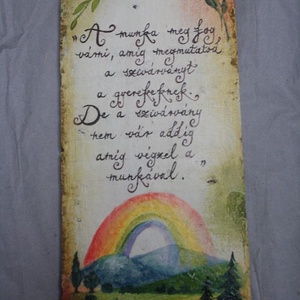 „A munka meg fog
várni, amíg megmutatod
a szivárványt
a gyerekeknek.
De a szivárvány
nem vár addig
amíg végzel a
munkával.”